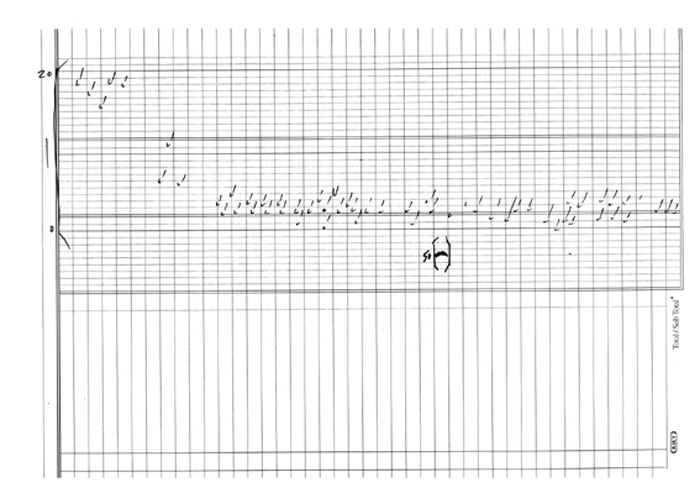 20
0
50
Total / Sub Total